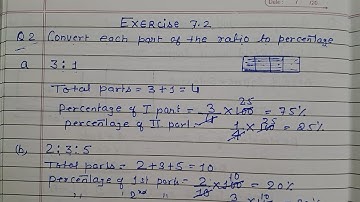 Date: / /20
EXERCISE 7.2
Q2 Convert each part of the ratio to percentage
a 3:1
Total parts = 3+1=4
percentage of I part = 3/4 × 100 25 = 75%
percentage of II part = 1/4 × 100 25 = 25%
(b) 2:3:5
Total parts = 2+3+5=10
percentage of 1st part = 2/10 × 100 10 = 20%
" " 2nd " = 3 × 10